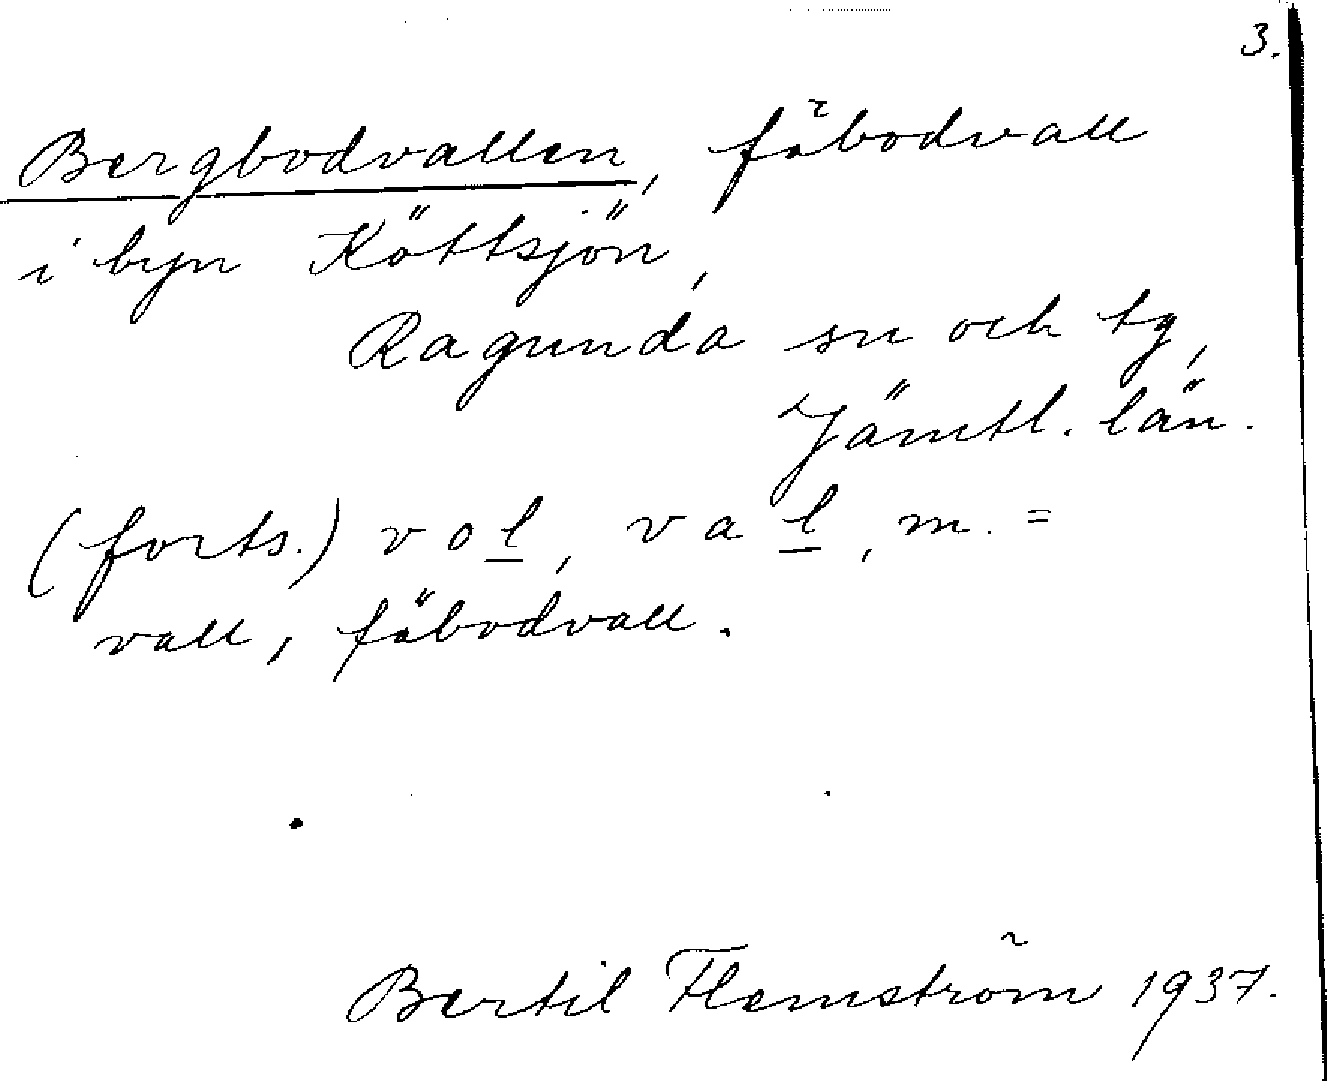 3.
Bergbodvallen, fäbodvall
i byn Köttsjön,
Ragunda sn och tg,
Jämtl. län.
(forts.) vol, val, m. =
vall, fäbodvall.
Bertil Flemström 1937.